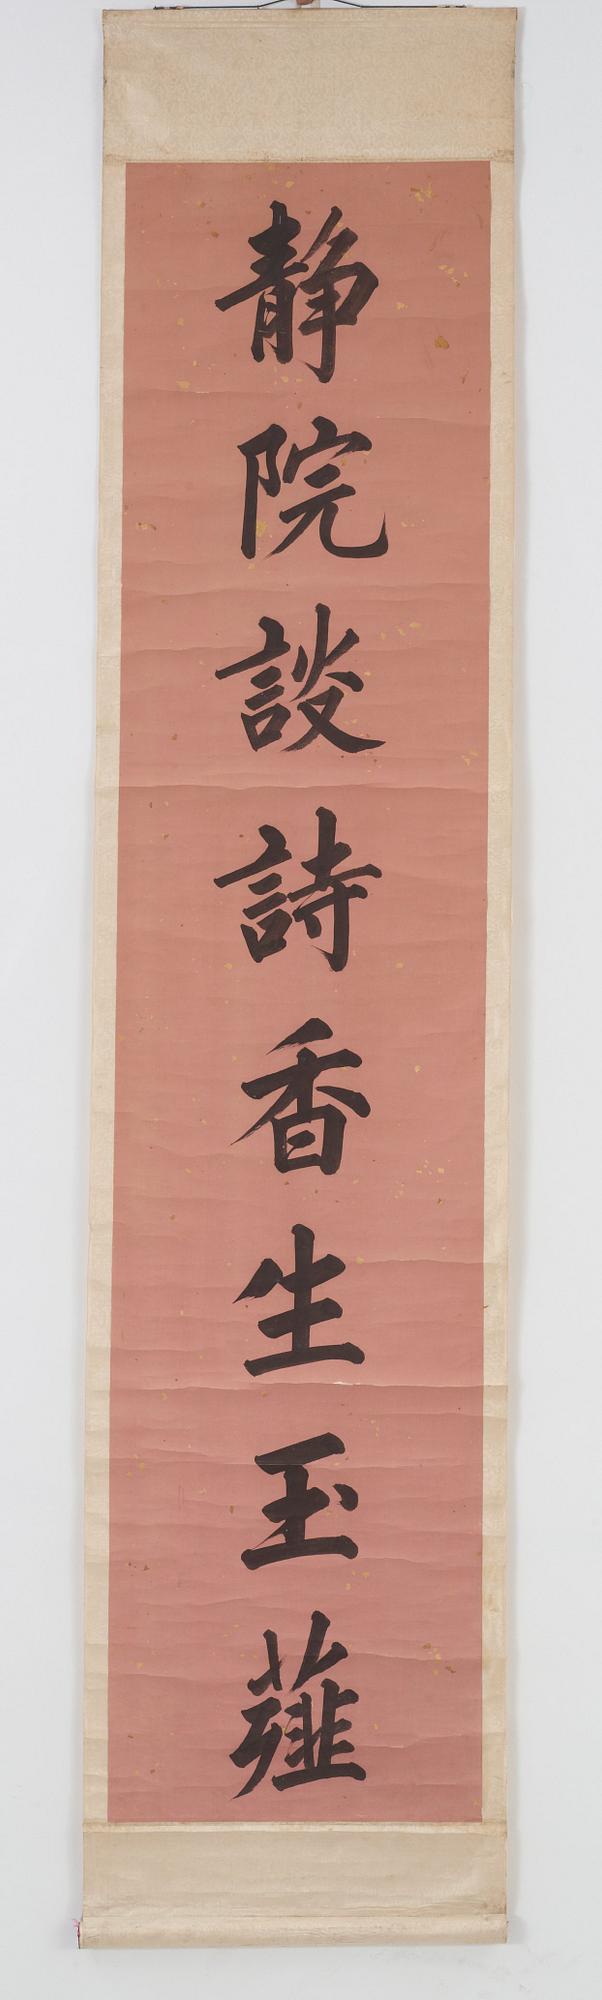 静院談詩香生玉薤